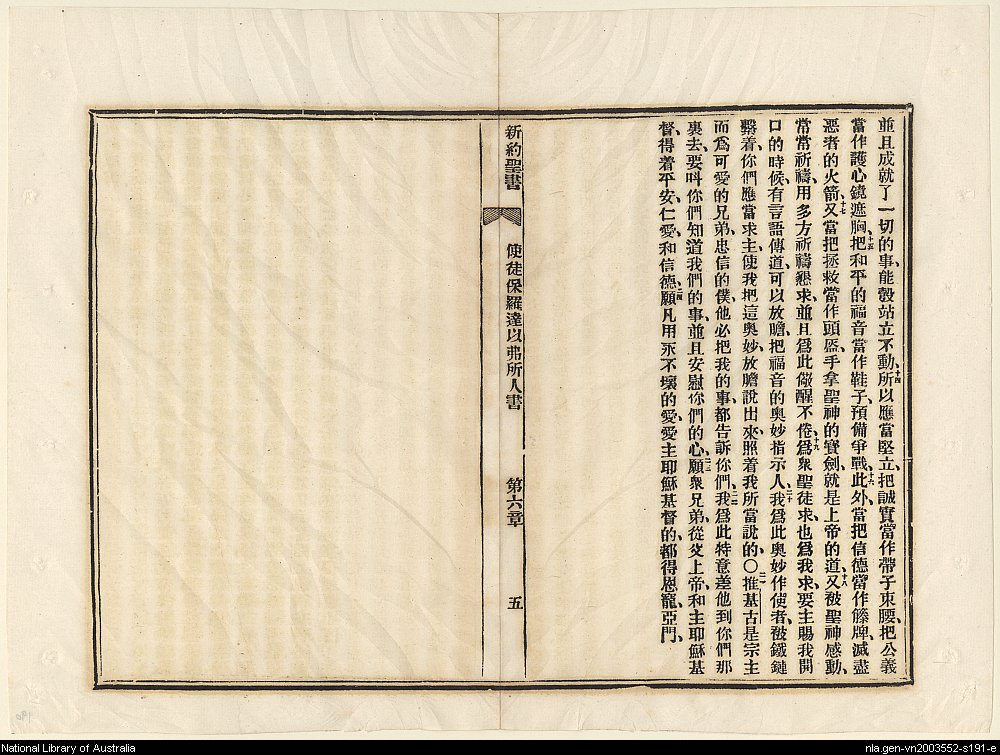 並且成就了一切的事、能彀站立不動、十四所以應當堅立、把誠實當作帶子束腰、把公義
當作護心鏡遮胸、十五把和平的福音當作鞋子、預備爭戰、十六此外、當把信德當作籐牌、滅盡
惡者的火箭、十七又當把拯救當作頭盔、手拿聖神的寶劍、就是上帝的道、十八又被聖神感動、
常常祈禱、用多方祈禱懇求、並且爲此儆醒不倦、十九爲衆聖徒求、也爲我求、要主賜我開
口的時候、有言語傳道、可以放膽、把福音的奧妙指示人、二十我爲此奧妙作使者、被鐵鏈
繫着、你們應當求主、使我把這奧妙放膽說出來、照着我所當說的、〇二一推基古是宗主
而爲可愛的兄弟、忠信的僕、他必把我的事、都告訴你們、二二我爲此特意差他到你們那
裏去、要呌你們知道我們的事、並且安慰你們的心、二三願衆兄弟、從父上帝、和主耶穌基
督、得着平安、仁愛、和信德、二四願凡用永不壞的愛、愛主耶穌基督的、都得恩寵、亞門、
新約聖書
使徒保羅達以弗所人書
第六章
五
National Library of Australia
nla.gen-vn2003552-s191-e